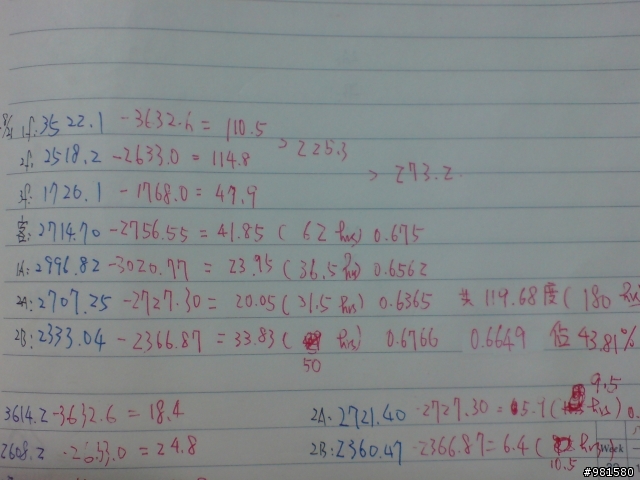 8/21 1f: 3522.1 - 3632.6 = 110.5
> 225.3
2f: 2518.2 - 2633.0 = 114.8
> 273.2
3f: 1720.1 - 1768.0 = 47.9
客: 2714.70 - 2756.55 = 41.85 ( 62 hrs) 0.675
1A: 2996.82 - 3020.77 = 23.95 ( 36.5 hrs) 0.6562
2A: 2707.25 - 2727.30 = 20.05 ( 31.5 hrs) 0.6365 共 119.68度 ( 180 hr
2B: 2333.04 - 2366.87 = 33.83 ( 50 hrs) 0.6766 0.6649 佔 43.81%
3614.2 - 3632.6 = 18.4 2A: 2721.40 - 2727.30 = 5.9 ( 9.5 hrs) 0.
2608.2 - 2633.0 = 24.8 2B: 2360.47 - 2366.87 = 6.4 ( 10.5 hrs)
Week
#981580